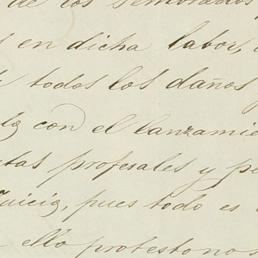 de los sembrados
en dicha labor,
todos los daños
con el lanzamie
tas profesales y pe
Juicio, pues todo es
ello protesto nos